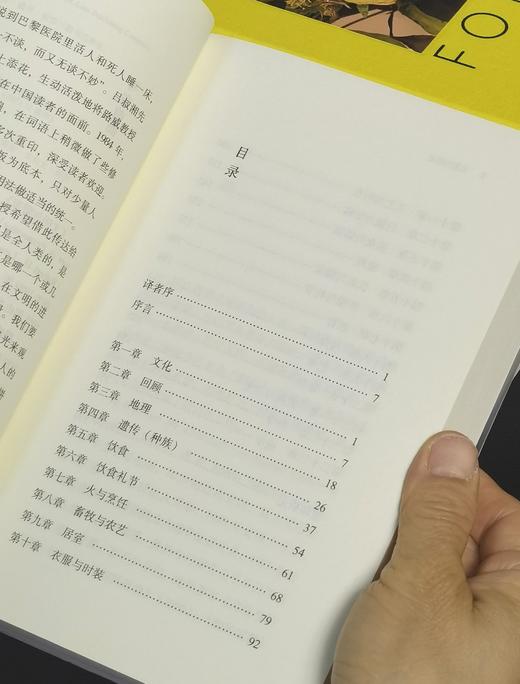 说到巴黎医院里活人和死人睡一床，
不谈，而又无谈不妙”。吕叔湘先
上添花，生动活泼地将路威教授
在中国读者的面前。1984 年，
，在词语上稍微做了些修
多次重印，深受读者欢迎。
版为底本，只对少量人
用法做适当的统一。
授希望借此传达给
是全人类的，是
是哪一个或几
在文明的进
。我们要
光来观
人的
拼
FO
目录
译者序 …… 1
序言 …… 7
第一章 文化 …… 1
第二章 回顾 …… 7
第三章 地理 …… 18
第四章 遗传（种族） …… 26
第五章 饮食 …… 37
第六章 饮食礼节 …… 54
第七章 火与烹饪 …… 61
第八章 畜牧与农艺 …… 68
第九章 居室 …… 79
第十章 衣服与时装 …… 92